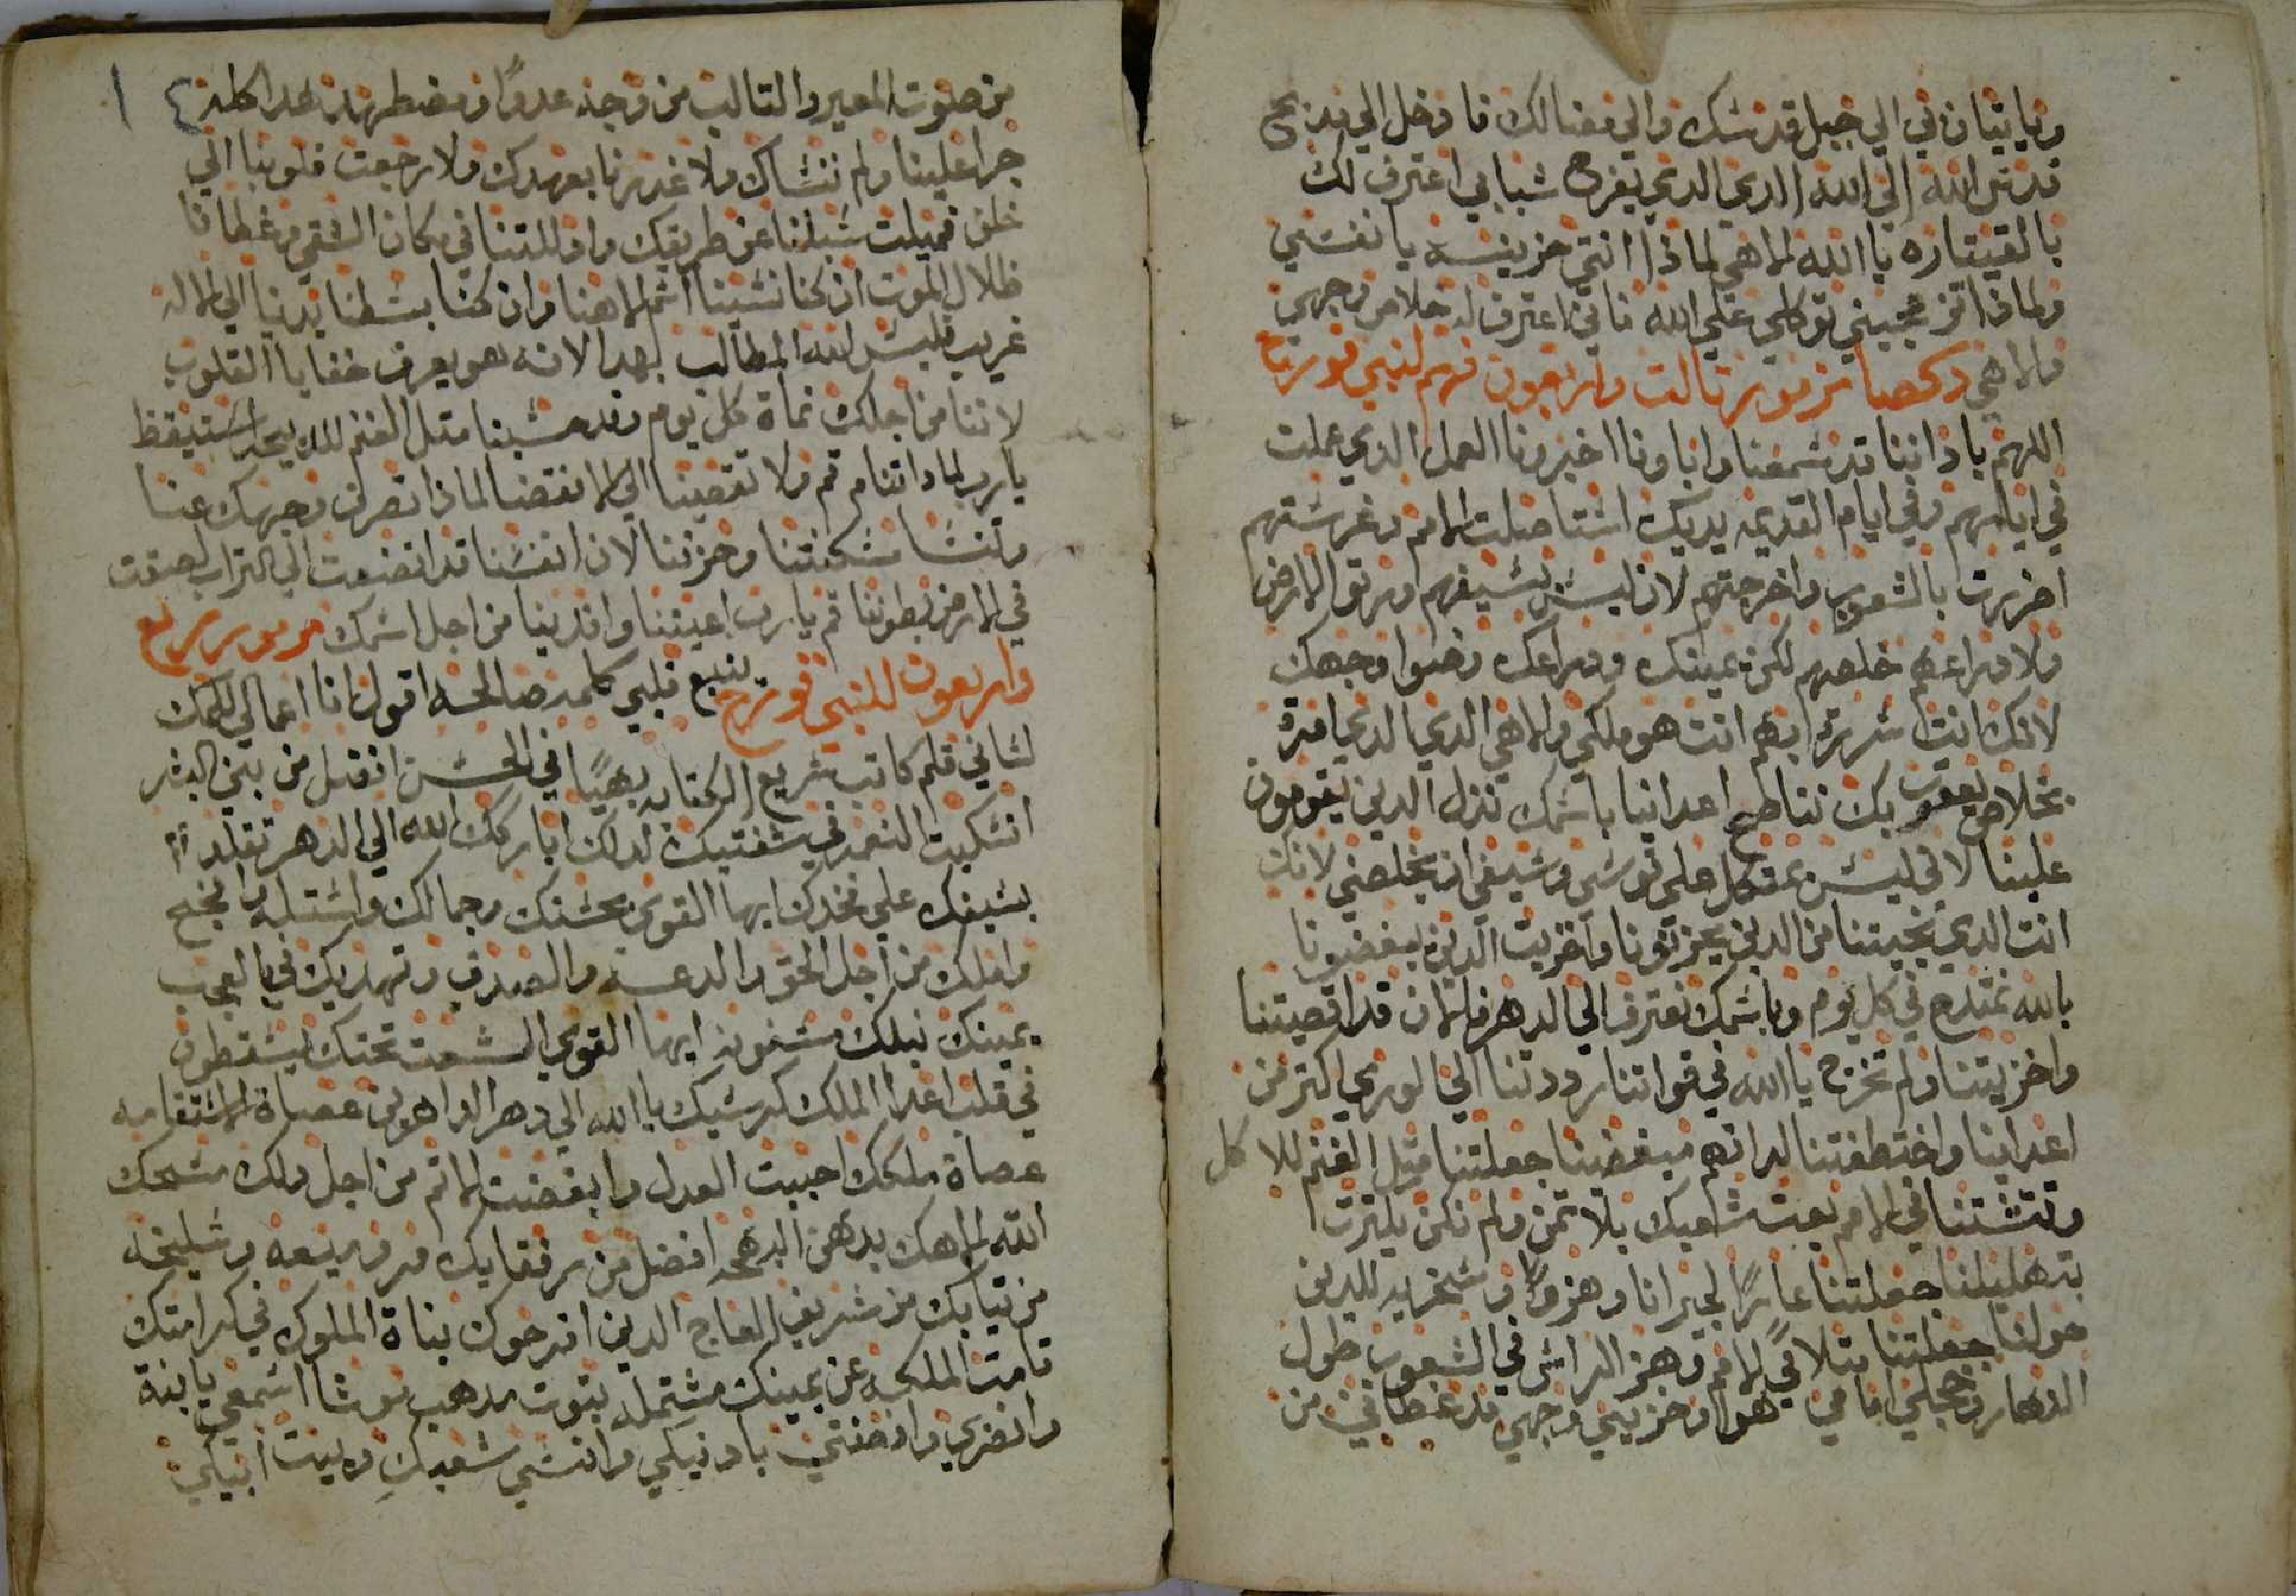 وياتيان بي الي جبل قدسك والي مضالك فادخل الي مذبح
قدس الله الي الله الدي الدي يفرح شبابي اعترف لك
بالقيتاره يا الله الاهي لماذا انتي حزينه يا نفسي
ولماذا تزعجيني توكلي علي الله فاني اعترف له خلاص وجهي
والاهي دكصا مزمور تالت واربعون فهم لبني قورح
اللهم باداننا قد سمعنا واباونا اخبرونا العمل الدي عملت
في ايامهم وفي ايام القديمه يديك استاصلت الامم وغرستهم
اضررت بالشعوب واخرجتهم لان ليس بسيفهم ورتوا الارض
ولا دراعهم خلصهم لكن يمينك ودراعك وضوا وجهك
لانك انت سررت بهم انت هو ملكي والاهي الدي الدي امرة
بخلاص يعقوب بك نناطح اعداينا باسمك نزدل الدين يقومون
علينا لاني ليس بمتكل علي قوسي وسيفي ان يخلصني لانك
انت الدي نجيتنا من الدين يحزنونا واخزيت الدين يبغضونا
بالله نمتدح في كل يوم وباسمك نعترف الي الدهر فالان قد اقصيتنا
واخزيتنا ولم تخرج يا الله في قواتنا رددتنا الي الوري اكتر من
اعداينا واختطفتنا لداتهم مبغضينا جعلتنا متل الغنم للاكل
وتشتتنا في الامم بعت شعبك بلا تمن ولم تكن بكترت
تهليلنا جعلتنا عارًا لجيراننا وهزوًا وسخريه للدين
حولنا جعلتنا متلا في الامم وهز الراس في الشعوب طول
النهار وخجلي امامي هو وخزيي وجهي قد غطاني من
من صوت المعير والتالب من وجه عدوًا ومضطهد هدا كله
جرا علينا ولم ننساك ولا غدرنا بعهدك ولا رجعت قلوبنا الي
خلف فميلت سبلنا عن طريقك واذللتنا في مكان الشقي وغطانا
ظلال الموت ان كنا نسينا اسم الاهنا وان كنا بسطنا يدينا الي اله
غريب فليس الله المطالب بهدا لانه هو يعرف خفايا القلوب
لاننا من اجلك نماة كل يوم وقد حسبنا متل الغنم للدبح استيقظ
يارب لمادا تنام قم ولا تقصينا الي الانقضا لماذا تصرف وجهك عنا
وتنسا مسكنتنا وحزننا لان انفسنا قد اتضعت الي التراب لصقت
في الارض بطوننا قم يارب اعيننا وافدينا من اجل اسمك مزمور رابع
واربعون للنبي قورح ينبع قلبي كلمه صالحه اقول انا اعمالي للملك
لساني قلم كاتب سريع الكتابه بهيًا في الحسن افضل من بني البشر
انسكبت النعمه في شفتيك لدلك باركك الله الي الدهر تقلد
بسيفك علي فخدك ايها القوي بحسنك وجمالك واستله وانجح
واملك من اجل الحق والدعه والصدق وتهديك في بالعجب
يمينك نبلك مسنونه ايها القوي الشعوب تحتك يسقطون
في قلب اعدا الملك كرسيك يا الله الي دهر الداهرين عصاة الاستقامه
عصاة ملكك احببت العدل وابغضت الاتم من اجل دلك مسحك
الله الاهك بدهن البهجه افضل من رفقايك مر وميعه وسليخه
من تيابك من شريف العاج الدين افرحوك بناة الملوك في كرامتك
قامت الملكه عن يمينك مشتمله بتوب مدهب موشا اسمعي يا ابنة
وانظري وانصتي بادنيكي وانسي شعبك وبيت ابيكي